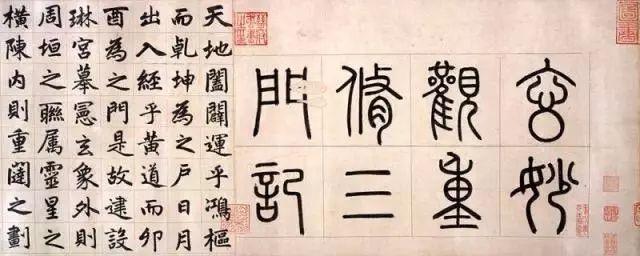 玄妙
觀重
脩三
門記
天地闔闢運乎鴻樞
而乹坤為之戶日月
出入經乎黃道而卯
酉為之門是故建設
琳宮摹憲玄象外則
周垣之聯属靈星之
橫陳内則重闥之劃